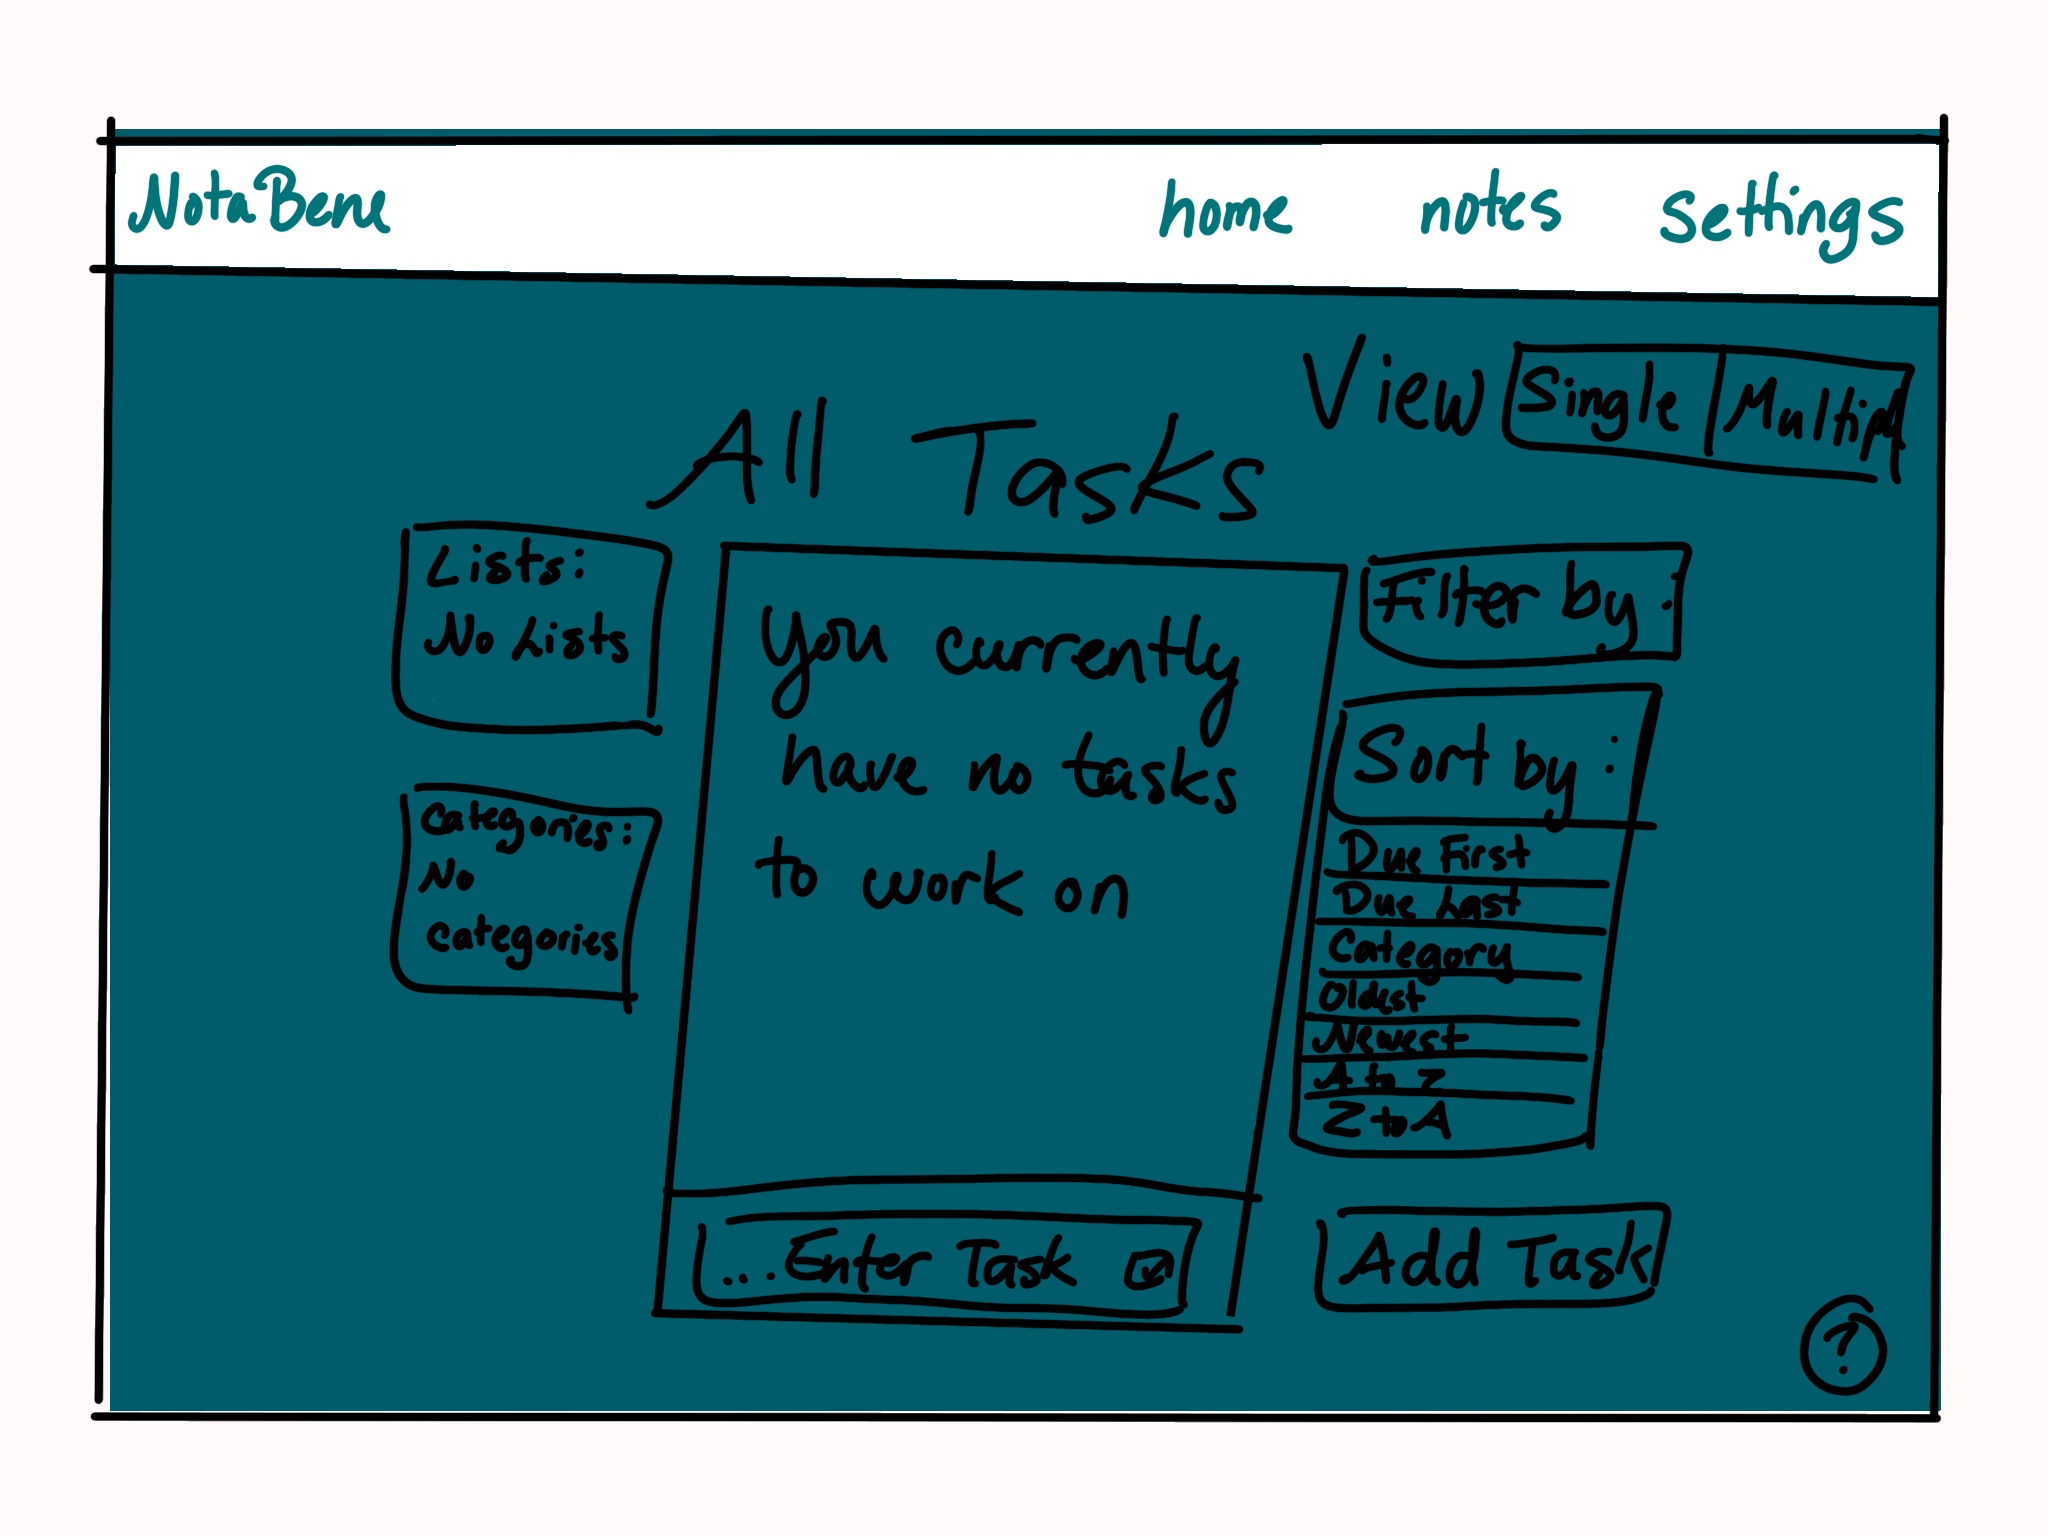 NotaBene home notes settings
View Single Multipl
All Tasks
Lists:
No Lists
Categories:
No
categories
You currently
have no tasks
to work on
...Enter Task
Filter by:
Sort by:
Due First
Due Last
Category
Oldest
Newest
A to Z
Z to A
Add Task
?